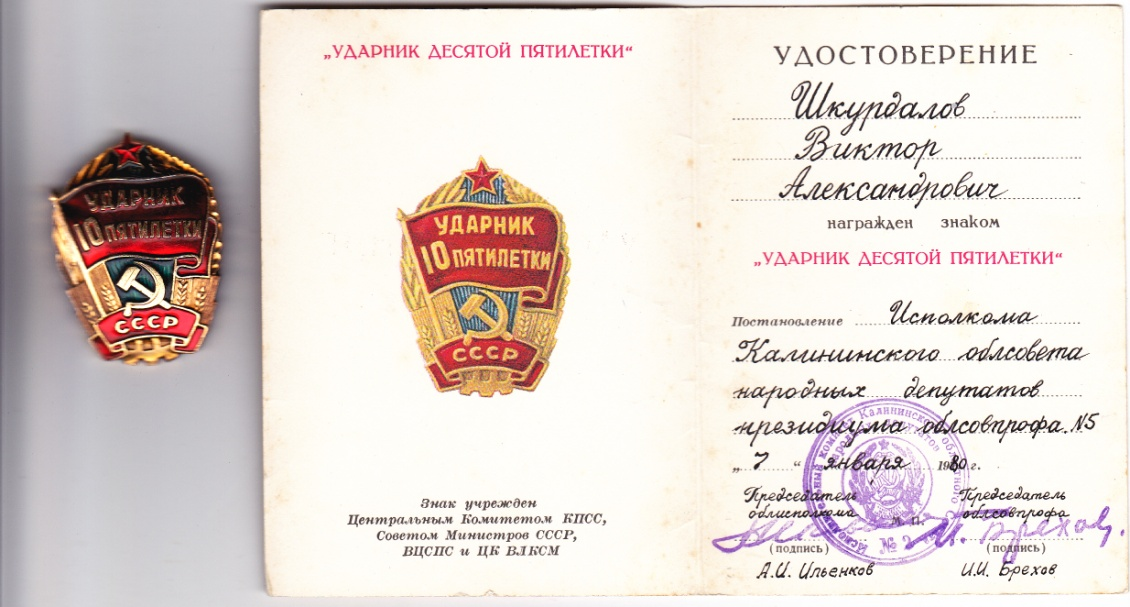 УДАРНИК
10 ПЯТИЛЕТКИ
СССР
„УДАРНИК ДЕСЯТОЙ ПЯТИЛЕТКИ“
УДАРНИК
10 ПЯТИЛЕТКИ
СССР
Знак учрежден
Центральным Комитетом КПСС,
Советом Министров СССР,
ВЦСПС и ЦК ВЛКСМ
УДОСТОВЕРЕНИЕ
Шкурдалов
Виктор
Александрович
награжден знаком
„УДАРНИК ДЕСЯТОЙ ПЯТИЛЕТКИ“
Постановление Исполкома
Калининского облсовета
народных депутатов
президиума облсовпрофа N5
„7“ января 1980 г.
Председатель облисполкома
Председатель облсовпрофа
М. П.
№ 2
И. Брехов.
(подпись) (подпись)
А.И. Ильенков И.И. Брехов